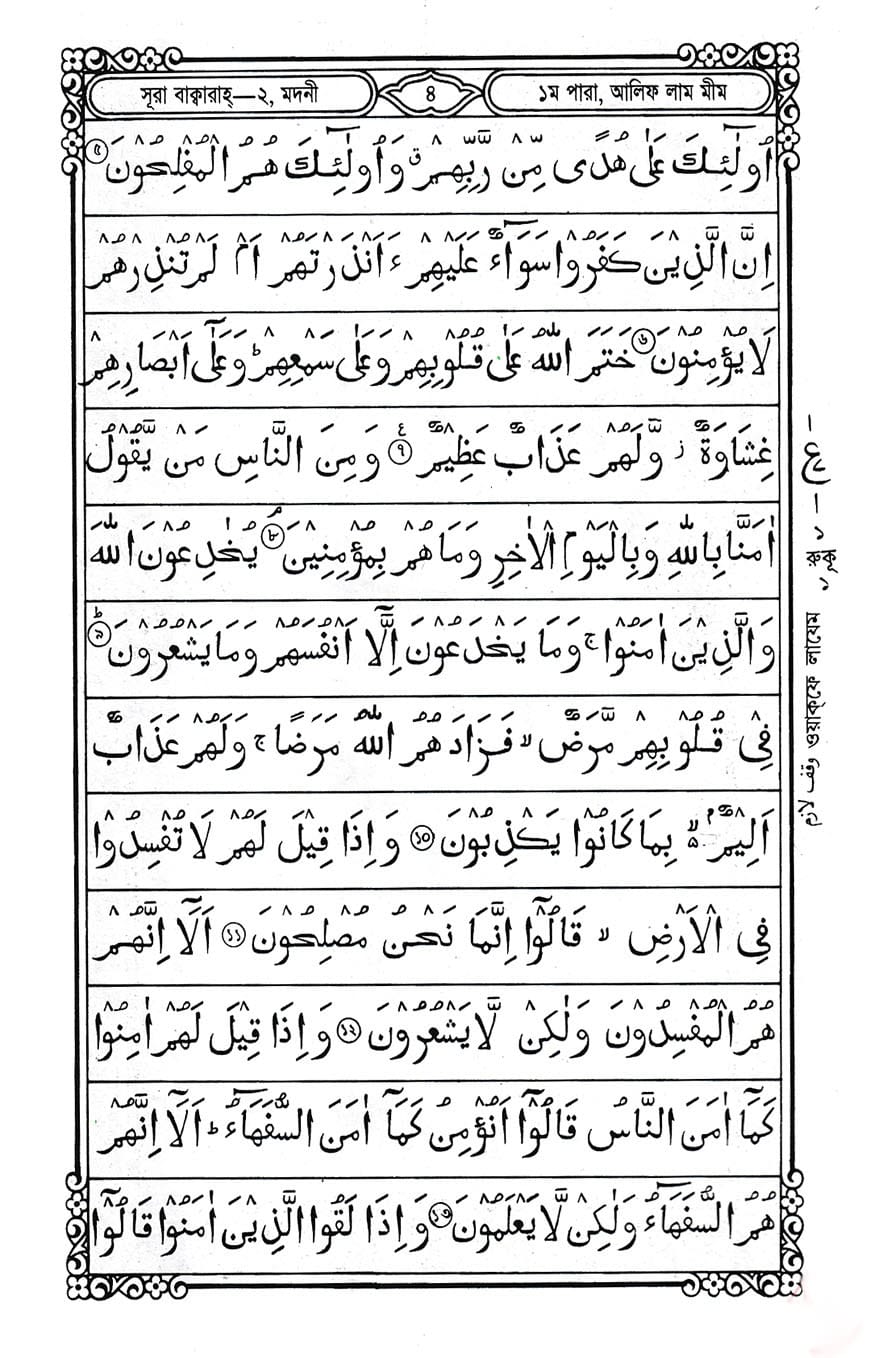 সূরা বাক্বারাহ্—২, মদনী
৪
১ম পারা, আলিফ লাম মীম
اُولٰٓئِكَ عَلٰى هُدًى مِّنْ رَّبِّهِمْ ۙ وَاُولٰٓئِكَ هُمُ الْمُفْلِحُوْنَ ৫
اِنَّ الَّذِيْنَ كَفَرُوْا سَوَآءٌ عَلَيْهِمْ ءَاَنْذَرْتَهُمْ اَمْ لَمْ تُنْذِرْهُمْ
لَا يُؤْمِنُوْنَ ৬ خَتَمَ اللّٰهُ عَلٰى قُلُوْبِهِمْ وَعَلٰى سَمْعِهِمْ ؕ وَعَلٰٓى اَبْصَارِهِمْ
غِشَاوَةٌ ز وَّلَهُمْ عَذَابٌ عَظِيْمٌ ৭ ع وَمِنَ النَّاسِ مَنْ يَّقُوْلُ
اٰمَنَّا بِاللّٰهِ وَبِالْيَوْمِ الْاٰخِرِ وَمَا هُمْ بِمُؤْمِنِيْنَ ৮ۘ يُخٰدِعُوْنَ اللّٰهَ
وَالَّذِيْنَ اٰمَنُوْا ۚ وَمَا يَخْدَعُوْنَ اِلَّآ اَنْفُسَهُمْ وَمَا يَشْعُرُوْنَ ৯ؕ
فِيْ قُلُوْبِهِمْ مَّرَضٌ ۙ فَزَادَهُمُ اللّٰهُ مَرَضًا ۚ وَلَهُمْ عَذَابٌ
اَلِيْمٌۢ ۙ بِمَا كَانُوْا يَكْذِبُوْنَ ১০ وَاِذَا قِيْلَ لَهُمْ لَا تُفْسِدُوْا
فِى الْاَرْضِ ۙ قَالُوْٓا اِنَّمَا نَحْنُ مُصْلِحُوْنَ ১১ اَلَآ اِنَّهُمْ
هُمُ الْمُفْسِدُوْنَ وَلٰكِنْ لَّا يَشْعُرُوْنَ ১২ وَاِذَا قِيْلَ لَهُمْ اٰمِنُوْا
كَمَآ اٰمَنَ النَّاسُ قَالُوْٓا اَنُؤْمِنُ كَمَآ اٰمَنَ السُّفَهَآءُ ؕ اَلَآ اِنَّهُمْ
هُمُ السُّفَهَآءُ وَلٰكِنْ لَّا يَعْلَمُوْنَ ১৩ وَاِذَا لَقُوا الَّذِيْنَ اٰمَنُوْا قَالُوْٓا
ع
রুকূ ১
وقف لازم ওয়াক্‌ফে লাযেম